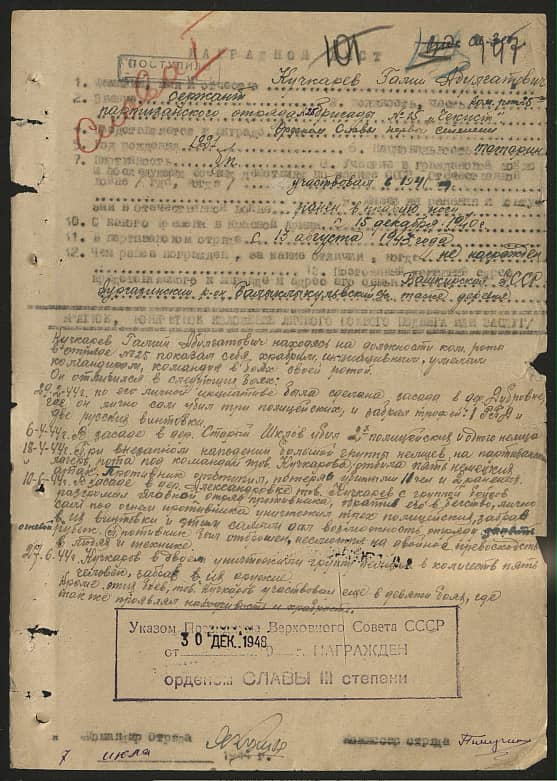 101
197
НАГРАДНОЙ ЛИСТ
ПОСТУПИЛ
Слава III
1. Фамилия, имя и отчество Кучкаров Галий Абдхатович
2. Звание сержант должность, часть ком. роты
партизанского отряда №25 бригады №15 „Чекист"
Представляется к награде орденом Славы первой степени
Год рождения 1921 г. 5. Национальность татарин
7. Партийность б/п 8. Участие в гражданской войне
и последующих боевых действиях по защите СССР в Отечественной
войне /где, когда/ участвовал с 1941 г.
ния в отечественной войне ранен в правую ногу
10. С какого времени в Красной Армии с 15 декабря 1940 г.
11. в партизанском отряде с 13 августа 1943 года
12. Чем ранее награжден, за какие отличия, когда не награжден
13. Постоянный домашний адрес
представляемого к награде и адрес его семьи Башкирская АССР
Аургазинский р-он, Балыклыкульский с/с, таже деревня
КРАТКОЕ, КОНКРЕТНОЕ ИЗЛОЖЕНИЕ ЛИЧНОГО БОЕВОГО ПОДВИГА ИЛИ ЗАСЛУГ/
Кучкаров Галий Абдхатович находясь на должности ком. роты
в отряде №25 показал себя храбрым, инициативным, умелым
командиром, командуя в боях своей ротой.
Он отличился в следующих боях:
29.2.44г. по его личной инициативе была сделана засада в др. Дубровно,
где он лично сам убил три полицейских, и забрал трофей: 1 РПД и
две русских винтовки.
6-4-44г. В засаде в дер. Старый Шклов убил 2х полицейских и одного немца
18-4-44г. При внезапном нападении большой группы немцев, на партизанский
лагерь, рота под командой тов. Кучкарова, отбила пять немецких
атак. Противник отступил, потеряв убитыми 10 чел и 2 ранеными
10-6-44г. В засаде в дер. Александровка тов. Кучкаров с группой бойцов
разгромил главной отряд противника, обратив его в бегство, лично
сам под огнем противника уничтожил трех полицейских, забрав
их винтовки и этим самым дал возможность отряду занять
рубеж. Противник был отброшен, несмотря на двойное превосходство
в людях и технике.
27.6.44г. Кучкаров в двоем уничтожили группу немцев в количестве пять
человек, забрав у них оружие.
Кроме этих боев, тов. Кучкаров участвовал еще в девяти боях, где
так же проявлял находчивость и храбрость.
Указом Президиума Верховного Совета СССР
от 30 ДЕК. 1948 г. НАГРАЖДЕН
орденом СЛАВЫ III степени
Командир Отряда
Комиссар отряда
7 июля 1944 г.